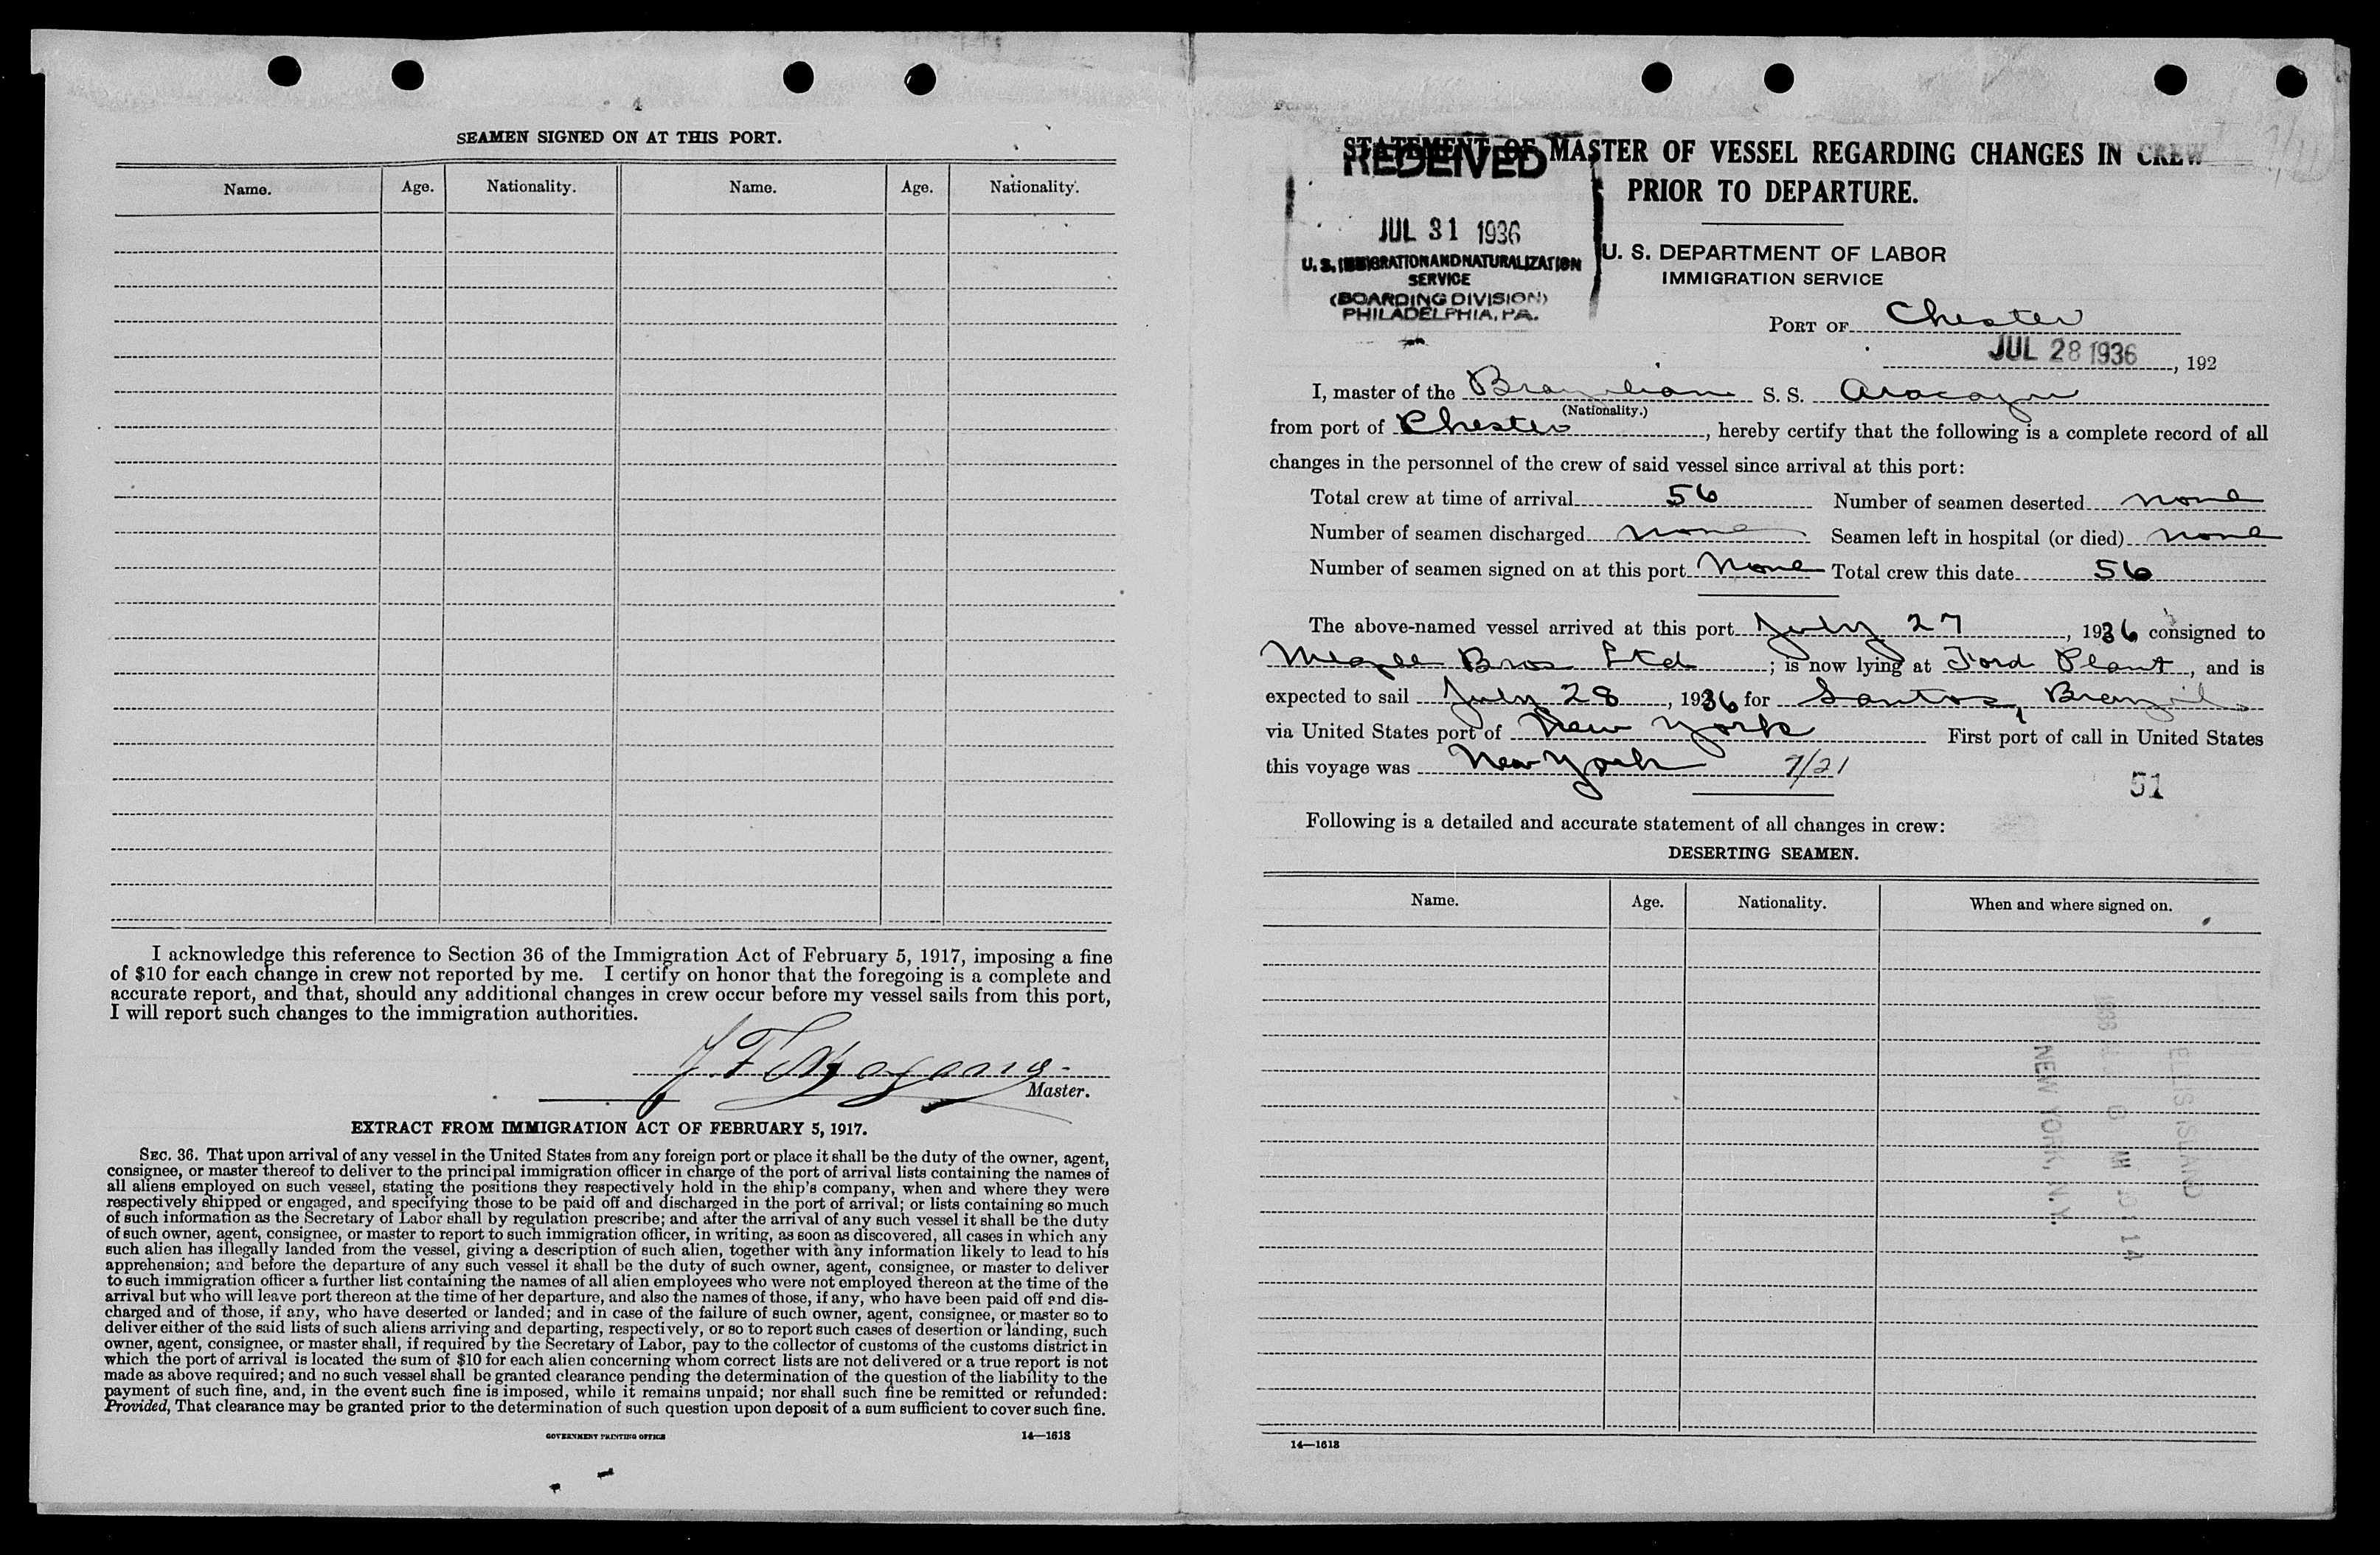 4
SEAMEN SIGNED ON AT THIS PORT.
Name. Age. Nationality. Name. Age. Nationality.
I acknowledge this reference to Section 36 of the Immigration Act of February 5, 1917, imposing a fine
of $10 for each change in crew not reported by me. I certify on honor that the foregoing is a complete and
accurate report, and that, should any additional changes in crew occur before my vessel sails from this port,
I will report such changes to the immigration authorities.
Master.
EXTRACT FROM IMMIGRATION ACT OF FEBRUARY 5, 1917.
SEC. 36. That upon arrival of any vessel in the United States from any foreign port or place it shall be the duty of the owner, agent,
consignee, or master thereof to deliver to the principal immigration officer in charge of the port of arrival lists containing the names of
all aliens employed on such vessel, stating the positions they respectively hold in the ship's company, when and where they were
respectively shipped or engaged, and specifying those to be paid off and discharged in the port of arrival; or lists containing so much
of such information as the Secretary of Labor shall by regulation prescribe; and after the arrival of any such vessel it shall be the duty
of such owner, agent, consignee, or master to report to such immigration officer, in writing, as soon as discovered, all cases in which any
such alien has illegally landed from the vessel, giving a description of such alien, together with any information likely to lead to his
apprehension; and before the departure of any such vessel it shall be the duty of such owner, agent, consignee, or master to deliver
to such immigration officer a further list containing the names of all alien employees who were not employed thereon at the time of the
arrival but who will leave port thereon at the time of her departure, and also the names of those, if any, who have been paid off and dis-
charged and of those, if any, who have deserted or landed; and in case of the failure of such owner, agent, consignee, or master so to
deliver either of the said lists of such aliens arriving and departing, respectively, or so to report such cases of desertion or landing, such
owner, agent, consignee, or master shall, if required by the Secretary of Labor, pay to the collector of customs of the customs district in
which the port of arrival is located the sum of $10 for each alien concerning whom correct lists are not delivered or a true report is not
made as above required; and no such vessel shall be granted clearance pending the determination of the question of the liability to the
payment of such fine, and, in the event such fine is imposed, while it remains unpaid; nor shall such fine be remitted or refunded:
Provided, That clearance may be granted prior to the determination of such question upon deposit of a sum sufficient to cover such fine.
GOVERNMENT PRINTING OFFICE 14—1618
STATEMENT OF MASTER OF VESSEL REGARDING CHANGES IN CREW
PRIOR TO DEPARTURE.
RECEIVED
JUL 31 1936
U. S. IMMIGRATION AND NATURALIZATION
SERVICE
(BOARDING DIVISION)
PHILADELPHIA, PA.
U. S. DEPARTMENT OF LABOR
IMMIGRATION SERVICE
PORT OF Chester
JUL 28 1936, 192
I, master of the Brazilian S. S. Aracaju
(Nationality.)
from port of Chester, hereby certify that the following is a complete record of all
changes in the personnel of the crew of said vessel since arrival at this port:
Total crew at time of arrival 56 Number of seamen deserted none
Number of seamen discharged none Seamen left in hospital (or died) none
Number of seamen signed on at this port None Total crew this date 56
The above-named vessel arrived at this port July 27, 1936 consigned to
Bros Ltd; is now lying at Ford Plant, and is
expected to sail July 28, 1936 for Santos, Brazil
via United States port of New York First port of call in United States
this voyage was New York 7/21
51
Following is a detailed and accurate statement of all changes in crew:
DESERTING SEAMEN.
Name. Age. Nationality. When and where signed on.
ELLIS ISLAND
NEW YORK, N. Y.
14—1618